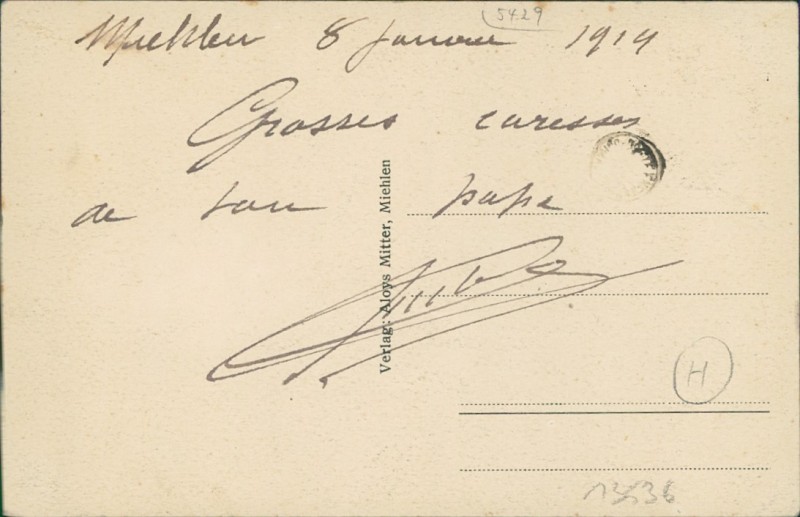 5429
Miehlen 8 Janvier 1919
Grosses caresses
de ton papa
Verlag: Aloys Mitter, Miehlen
H